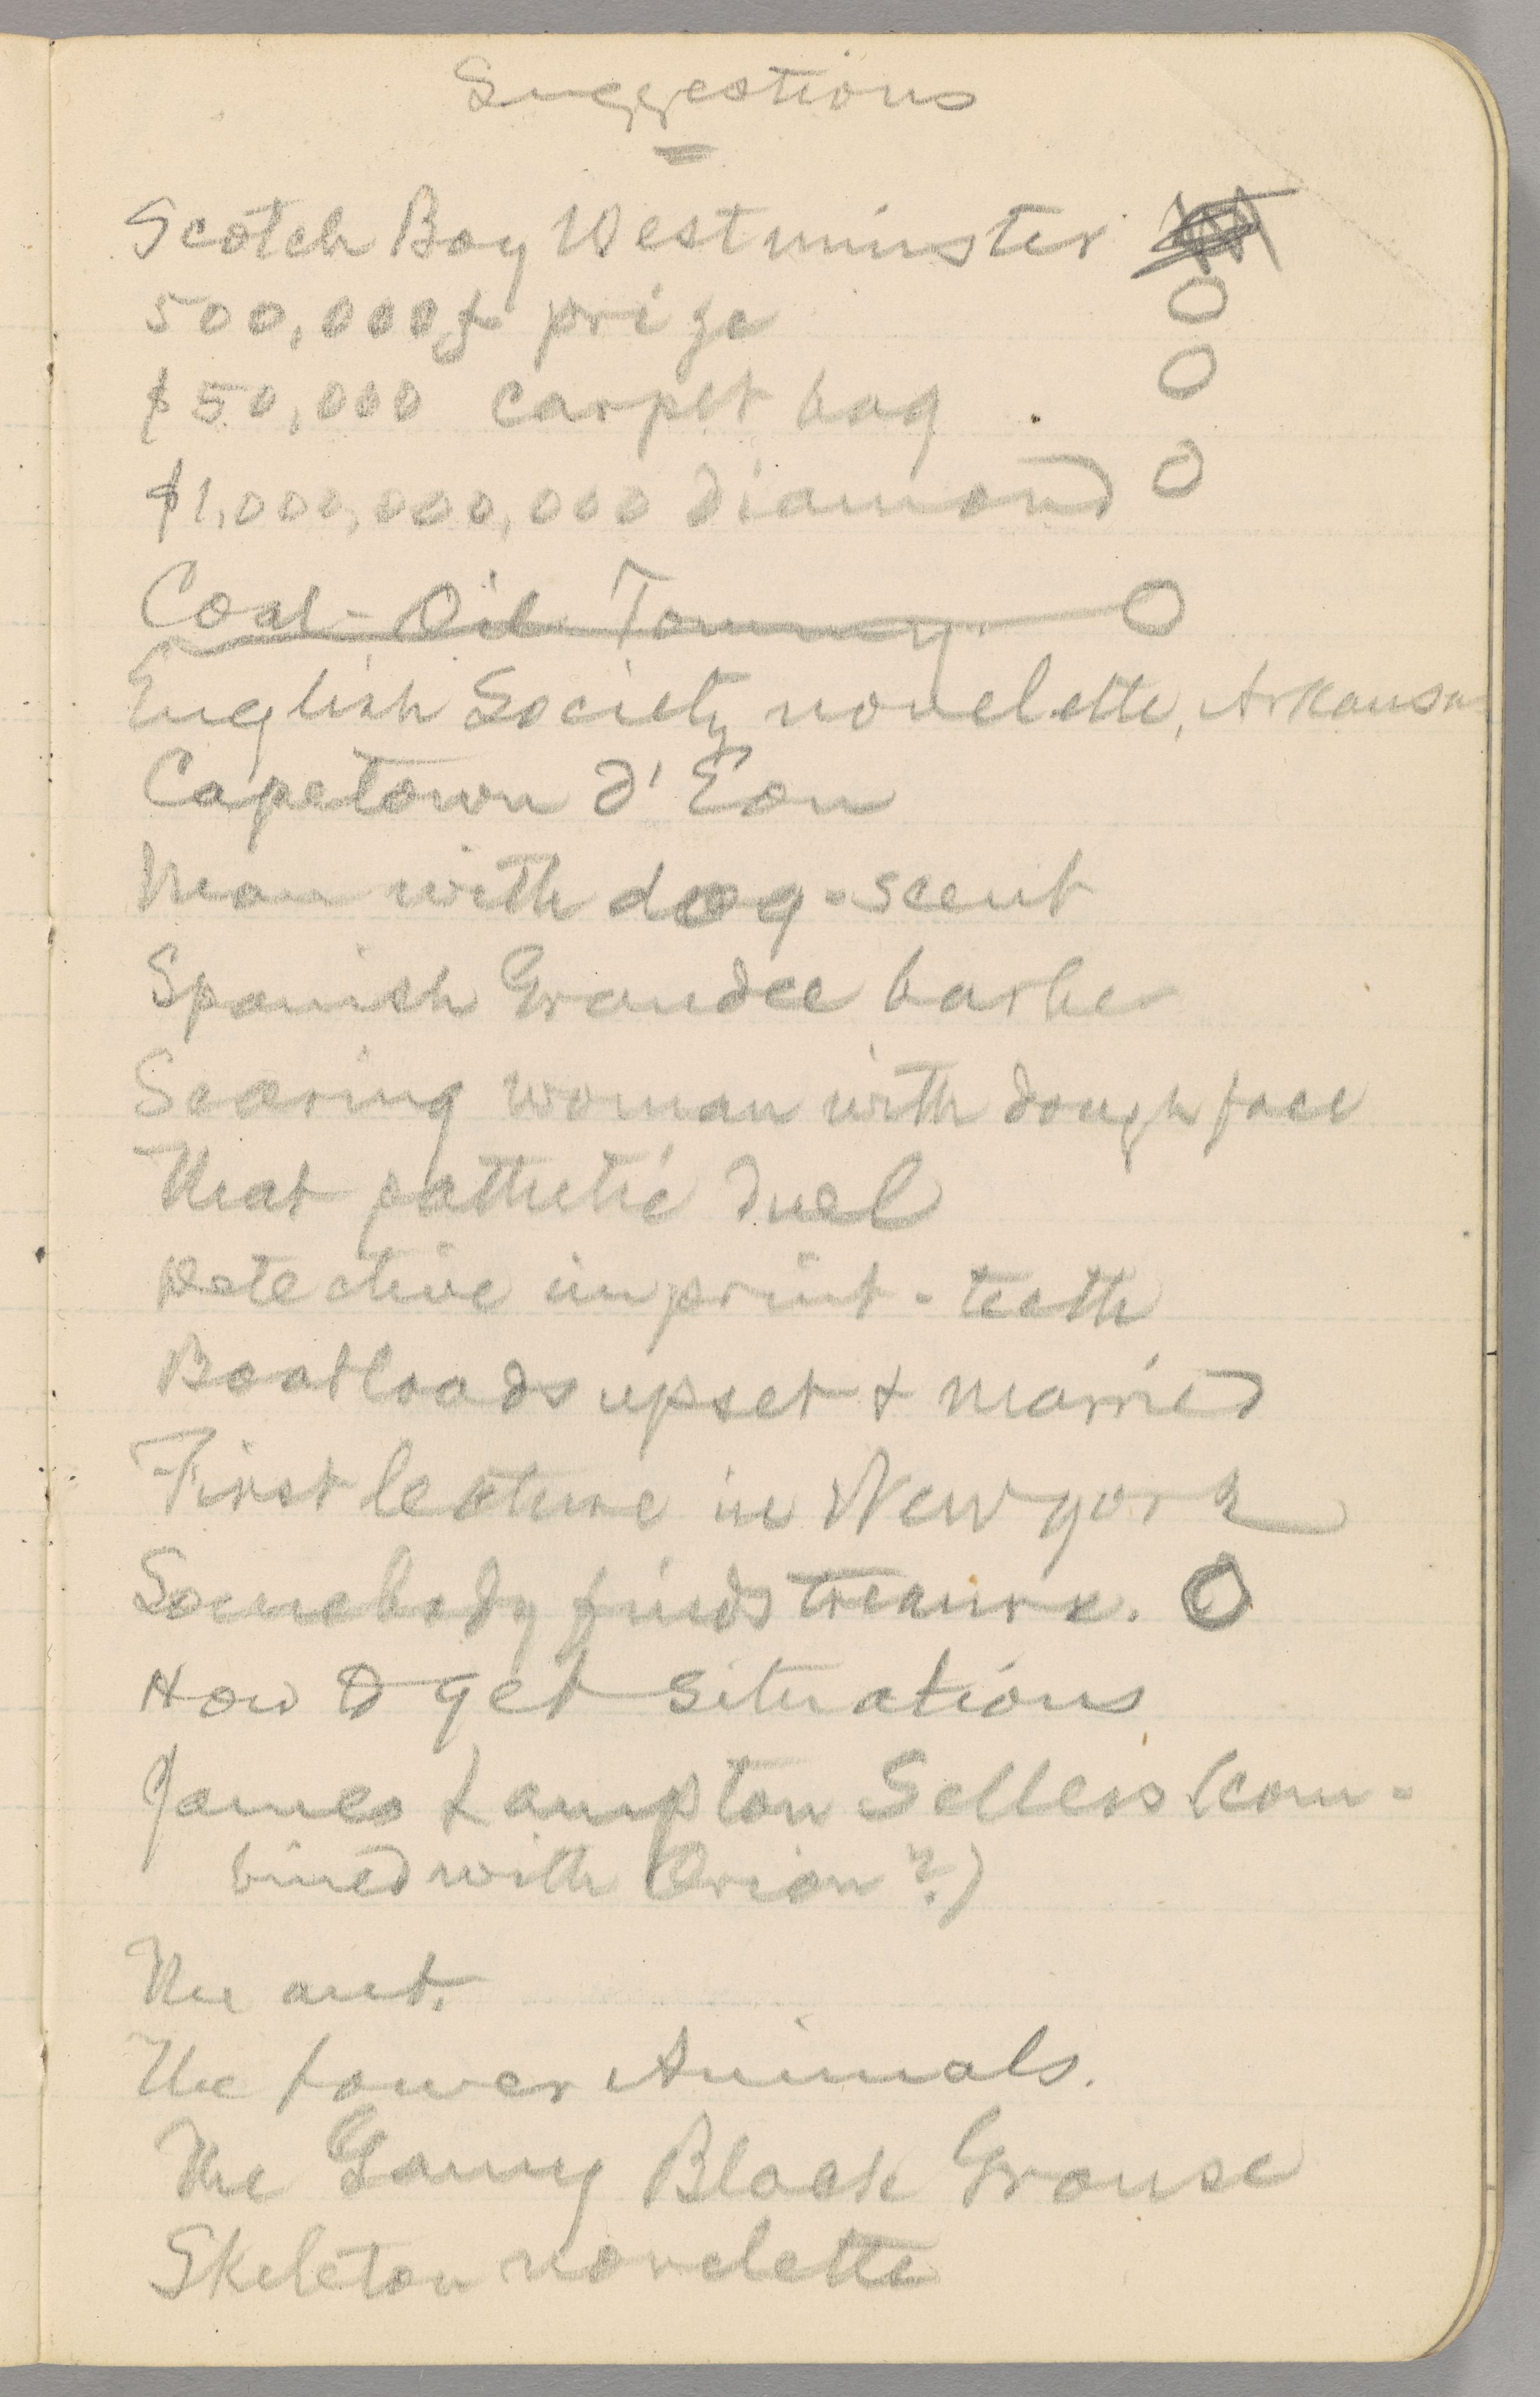 Suggestions
Scotch Boy Westminster
500,000£ prize O
$50,000 carpet bag O
$1,000,000,000 diamond O
Coal-Oil Tommy. O
English Society novelette, Arkansas
Capetown d'Eon
Man with dog-scent
Spanish Grandee barber
Scaring woman with dough face
That pathetic duel
Detective imprint-teeth
Boatloads upset & married
First lecture in New York
Somebody finds treasure. O
How to get situations
James Lampton Sellers (com-
bined with Orion?)
The ant.
The Lower Animals.
The Gamy Black Grouse
Skeleton novelette